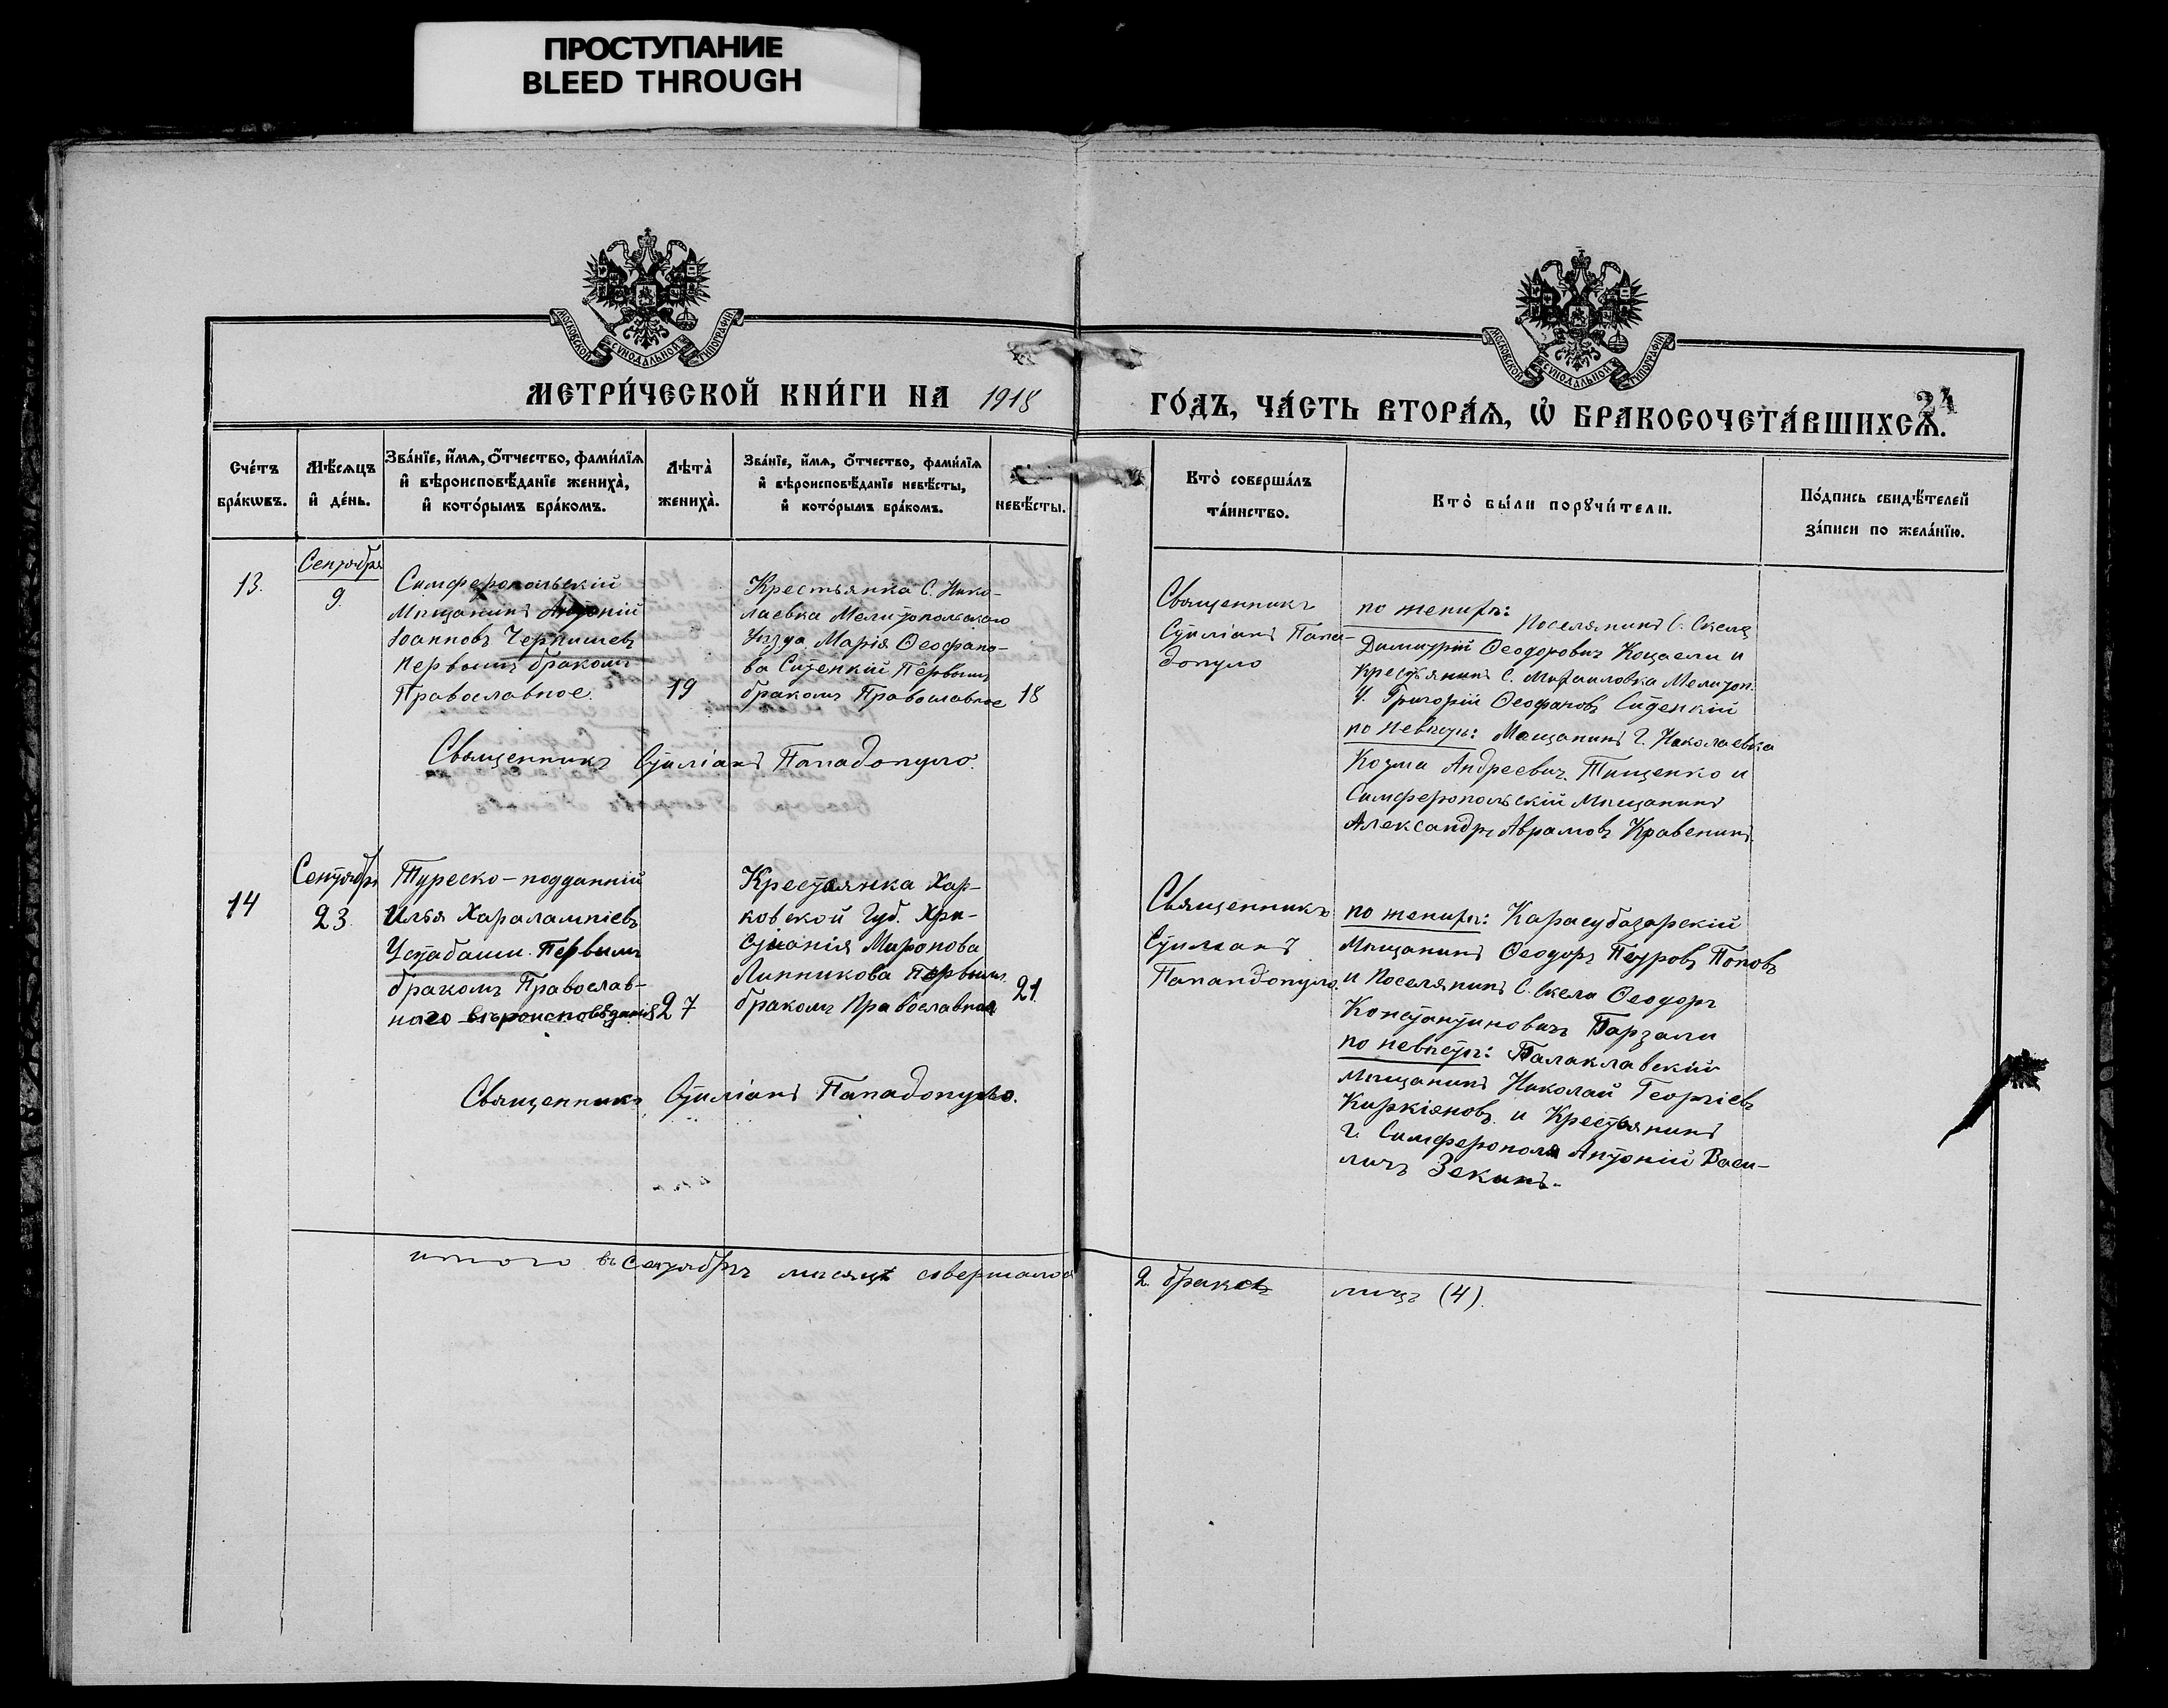 ПРОСТУПАНИЕ
BLEED THROUGH
МОСКОВСКОЙ СУНОДАЛЬНОЙ ТИПОГРАФІИ
МОСКОВСКОЙ СУНОДАЛЬНОЙ ТИПОГРАФІИ
МЕТРИ́ЧЕСКОЙ КНИ́ГИ НА 1918
ГО́ДЪ, ЧА́СТЬ ВТОРА́Ѧ, Ѡ҆ БРАКОСОЧЕТА́ВШИХСѦ.
24
Сче́тъ
бра́кѡвъ.
Мѣ́сѧцъ
и҆ де́нь.
Зва́нїе, и҆́мѧ, ѻ҆́тчество, фами́лїѧ
и҆ вѣроисповѣ́данїе жениха̀,
и҆ кото́рымъ бра́комъ.
Лѣта̀
жениха̀.
Зва́нїе, и҆́мѧ, ѻ҆́тчество, фами́лїѧ
и҆ вѣроисповѣ́данїе невѣ́сты,
и҆ кото́рымъ бра́комъ.
невѣ́сты.
Кто̀ соверша́лъ
та́инство.
Кто̀ бы́ли порꙋчи́тели.
По́дпись свидѣ́телей
за́писи по жела́нїю.
13.
Сентября
9.
Симферопольскій
Мѣщанинъ Антоній
Іоанновъ Чернишев
Первымъ бракомъ
Православное
19
Крестьянка С. Нико-
лаевка Мелитопольскаго
Уѣзда Марія Ѳеофано-
ва Сиденкій Первымъ
бракомъ Православное
18
Священникъ Стиліанъ Пападопуло.
Священникъ
Стиліанъ Папа-
допуло
по жениху:
Поселянинъ С. Скеля
Димитрій Ѳеодорович и
крестьянинъ С. Михаиловка Мелитоп.
У. Григорій Ѳеофановъ Сиденкій
по невѣстѣ: Мѣщанинъ Г. Николаевка
Козма Андреевич. Тищенко и
Симферопольскій Мѣщанинъ
Александръ Аврамовъ Кравенинъ.
14
Сентября
23.
Турецко-подданній
Илья Харалампіевъ
Устабаши. Первымъ
бракомъ Православ-
наго вѣроисповѣданія
27
Крестьянка Хар-
ковской Губ. Хри-
стианія Миронова
Линникова Первымъ
бракомъ Православная
21.
Священникъ Стиліанъ Пападопуло.
Священникъ
Стиліанъ
Папандопуло.
по жениху: Карасубазарскій
Мѣщанинъ Ѳеодоръ Петровъ Поповъ
и Поселянинъ С. Скеля Ѳеодоръ
Константиновичъ Барзали
по невѣстѣ: Балаклавскій
Мѣщанинъ Николай Георгіевъ
Киркіяновъ и Крестьянинъ
г. Симферополя Антоній Васи-
личъ Зекинъ.
итого въ Сентябрѣ мѣсяцѣ совершалос
2. браковъ лицъ (4).